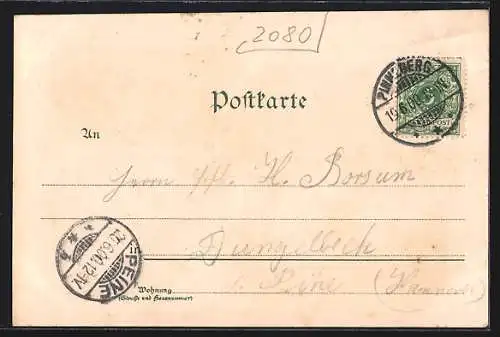 2080
Postkarte
PINNEBERG
An
Herrn H. Borsum
in Dungelbeck
PEINE
Wohnung
(Straße und Hausnummer)
b. Peine (Hannover)